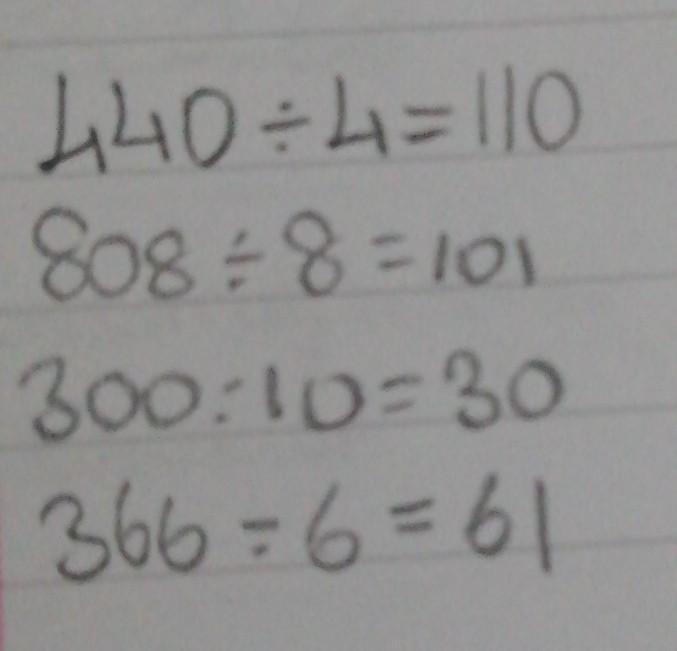 440 ÷ 4 = 110
808 ÷ 8 = 101
300 ÷ 10 = 30
366 ÷ 6 = 61